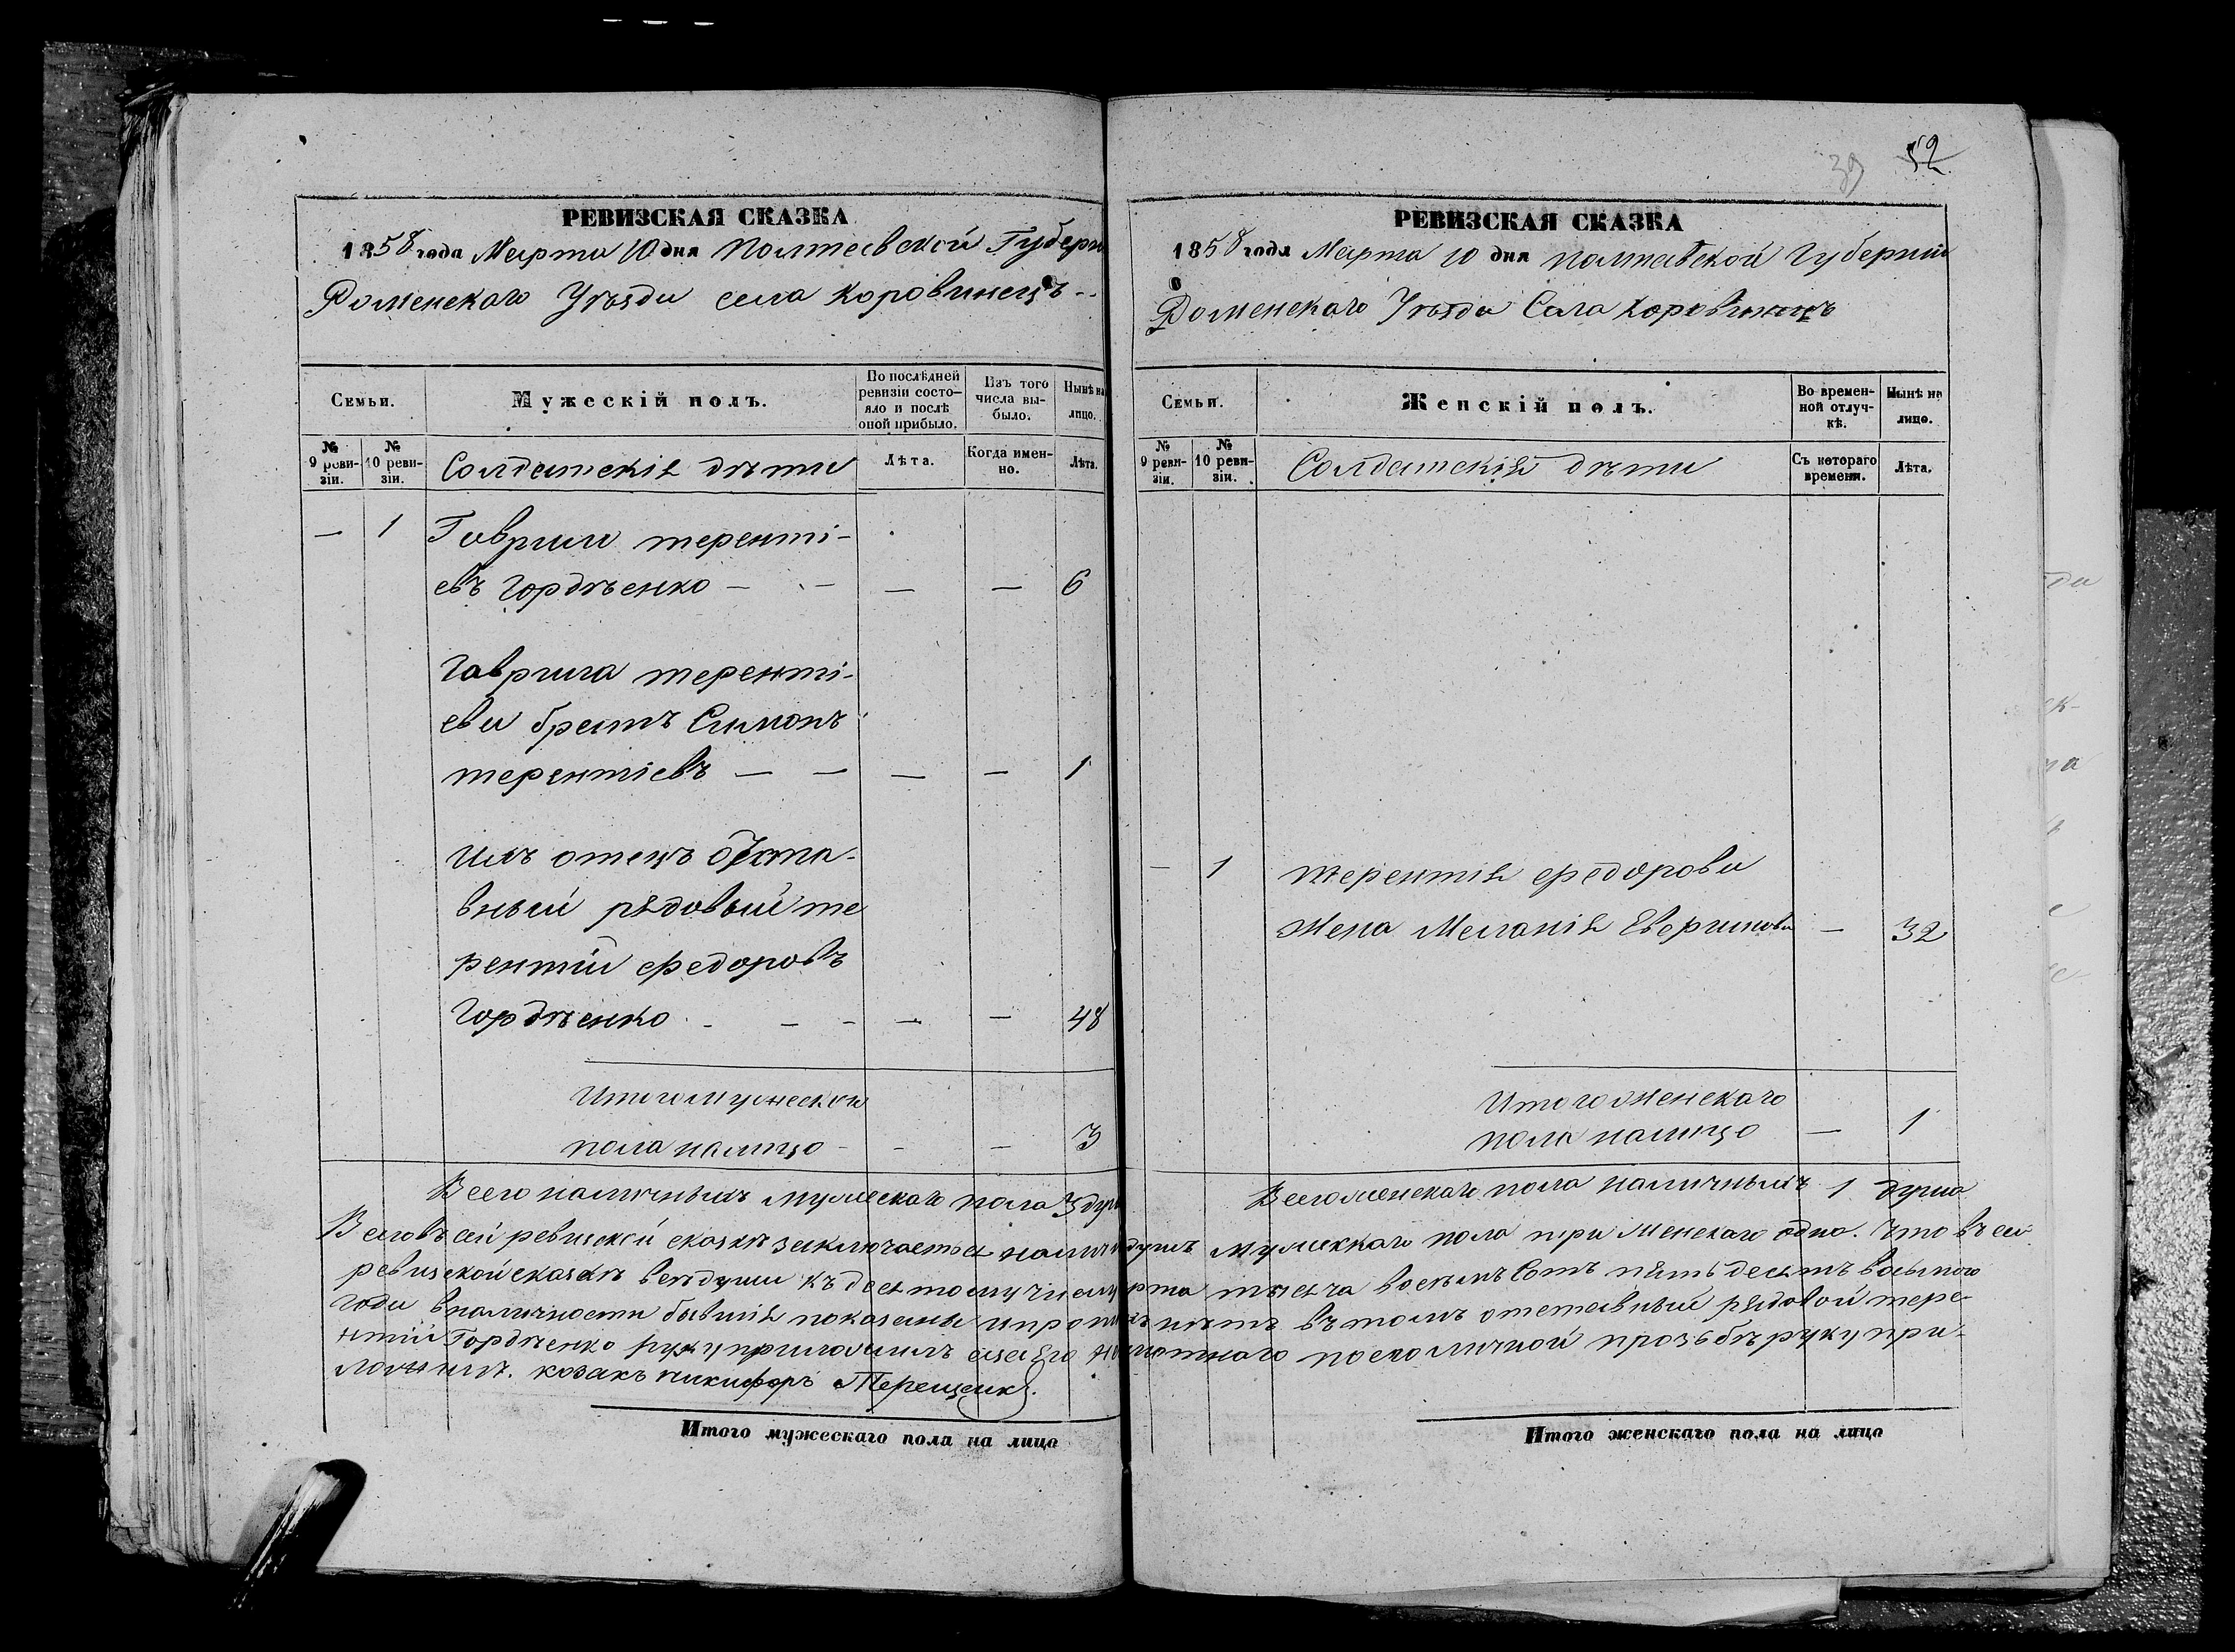 РЕВИЗСКАЯ СКАЗКА
1858 года Марта 10 дня Полтавской Губерн
Роменскаго Уѣзда села Коровинецъ
Семьи.
Мужескій полъ.
По послѣдней ревизіи состояло и послѣ оной прибыло.
Изъ того числа выбыло.
Нынѣ на лицо.
№ 9 ревизіи.
№ 10 ревизіи.
Солдатскія дѣти
Лѣта.
Когда именно.
Лѣта.
— 1 Гаврило теренті-
евъ Гордѣенко — — — — 6
Гаврила теренті-
ева братъ Симонъ
терентіевъ — — — — 1
Ихъ отецъ Отста-
вный рядовый те
рентій федоровъ
Гордѣенко - - - — — 48
Итого мужескаго
пола налицо - - — 3
Всего наличныхъ мужескаго пола 3 душ
52
39
РЕВИЗСКАЯ СКАЗКА
1858 года Марта 10 дня полтавской Губерніи
Роменскаго Уѣзда Села Коровинецъ
Семьи.
Женскій полъ.
Во временной отлучкѣ.
Нынѣ на лицо.
№ 9 ревизіи.
№ 10 ревизіи.
Солдатскія дѣти
Съ котораго времени.
Лѣта.
— 1 терентія федорова
жена Меланія — 32
Итого женскаго
пола налицо — 1
Всего женскаго пола наличныхъ 1 душа
Всего въ сей ревизской сказкѣ заключается налич душъ мужескаго пола три женскаго одна. Что въ сей
ревизской сказкѣ всѣ души къ десятому числу рта тысяча восемъ Сотъ пятьдесятъ восьмого
года въ наличности бывшія показаны и нѣтъ въ томъ отставный рядовой тере-
нтій Гордѣенко руку приложилъ а за его мотнаго по его личной прозьбѣ руку при-
ложилъ. козакъ никифоръ Терещенк
Итого мужескаго пола на лицо
Итого женскаго пола на лицо